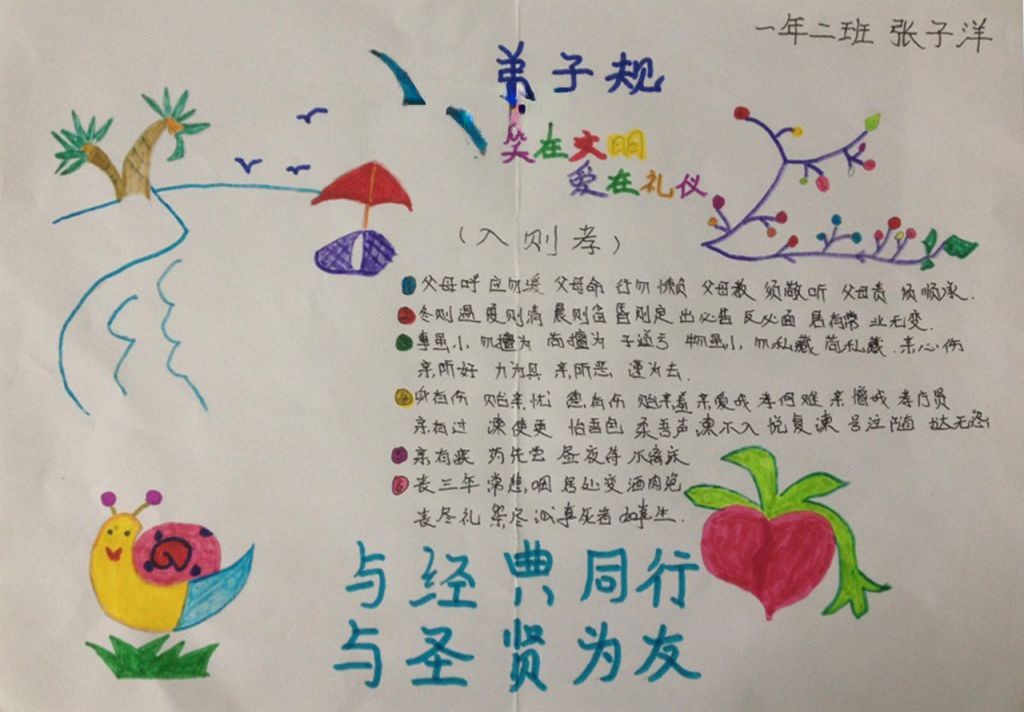 一年二班 张子洋
弟子规
笑在文明
爱在礼仪
（入则孝）
1 父母呼 应勿缓 父母命 行勿懒 父母教 须敬听 父母责 须顺承.
2 冬则温 夏则清 晨则省 昏则定 出必告 反必面 居有常 业无变.
3 事虽小,勿擅为 苟擅为 子道亏 物虽小,勿私藏 苟私藏.亲心伤
亲所好 力为具 亲所恶 谨为去.
4 身有伤 贻亲忧 德有伤 贻亲羞 亲爱我 孝何难 亲憎我 孝方贤
亲有过 谏使更 怡吾色 柔吾声 谏不入 悦复谏 号泣随 挞无怨
5 亲有疾 药先尝 昼夜侍 不离床
6 丧三年 常悲咽 居处变 酒肉绝
丧尽礼 祭尽诚 事死者 如事生.
与经典同行
与圣贤为友